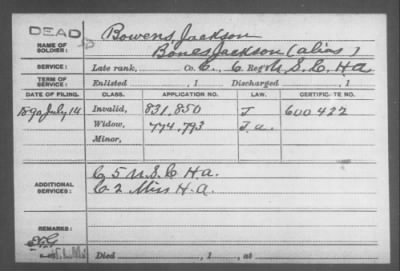 DEAD
NAME OF SOLDIER: Bowens, Jackson
Bones, Jackson (alias)
SERVICE: Late rank, Co. C, 6 Reg't U.S.C.H.A.
TERM OF SERVICE: Enlisted , 1 Discharged , 1
DATE OF FILING. CLASS. APPLICATION NO. LAW. CERTIFICATE NO.
1890 July 14 Invalid, 831,850 J 600422
Widow, 774,793 J.a.
Minor,
ADDITIONAL SERVICES: C 5 U.S.C.H.A.
C 2 Miss H.A.
REMARKS:
Died , 1 , at